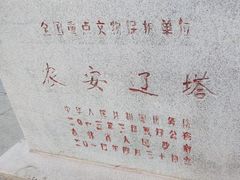 全国重点文物保护单位
农安辽塔
中华人民共和国国务院
二〇一三年三月五日公布
吉林省人民政府
二〇一七年四月三十日立